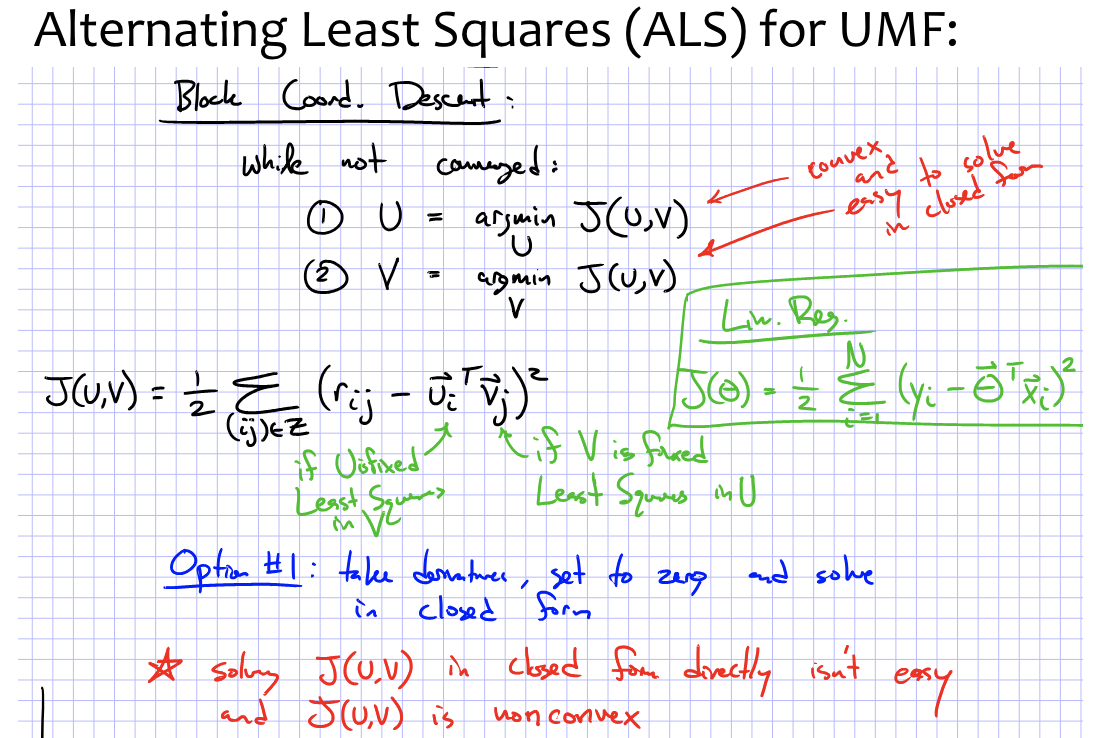 Alternating Least Squares (ALS) for UMF:
Block Coord. Descent:
while not converged:
① U = argmin J(U,V)
U
② V = argmin J(U,V)
V
convex
and
easy to solve
in closed form
Lin. Reg.
J(θ) = 1/2 ∑_{i=1}^{N} (y_i - θ⃗^T x⃗_i)^2
J(U,V) = 1/2 ∑_{(ij)∈Z} (r_{ij} - u⃗_i^T v⃗_j)^2
if U is fixed
Least Squares
in V
if V is fixed
Least Squares in U
Option #1: take derivatives, set to zero and solve
in closed form
☆ solving J(U,V) in closed form directly isn't easy
and J(U,V) is nonconvex